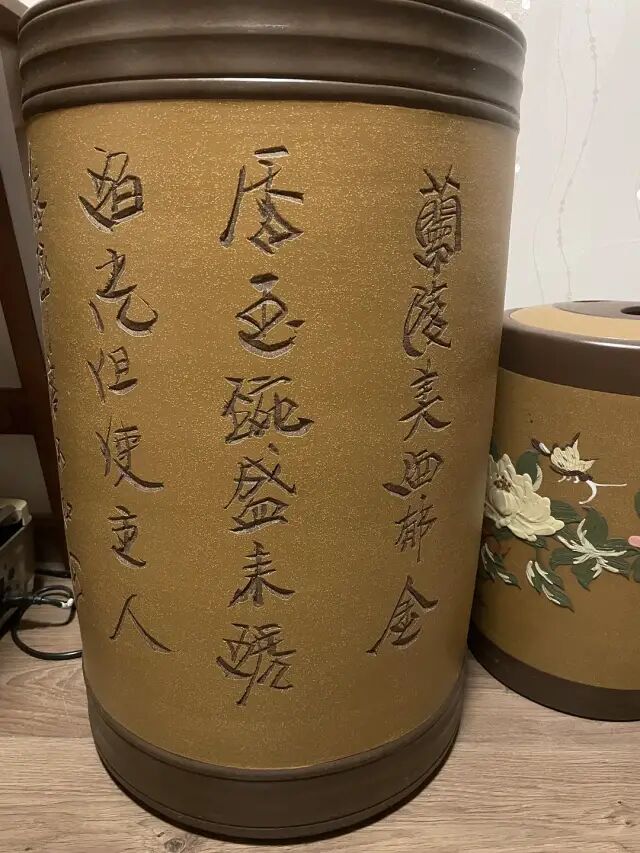 蘭陵美酒郁金
香玉碗盛来琥
珀光但使主人